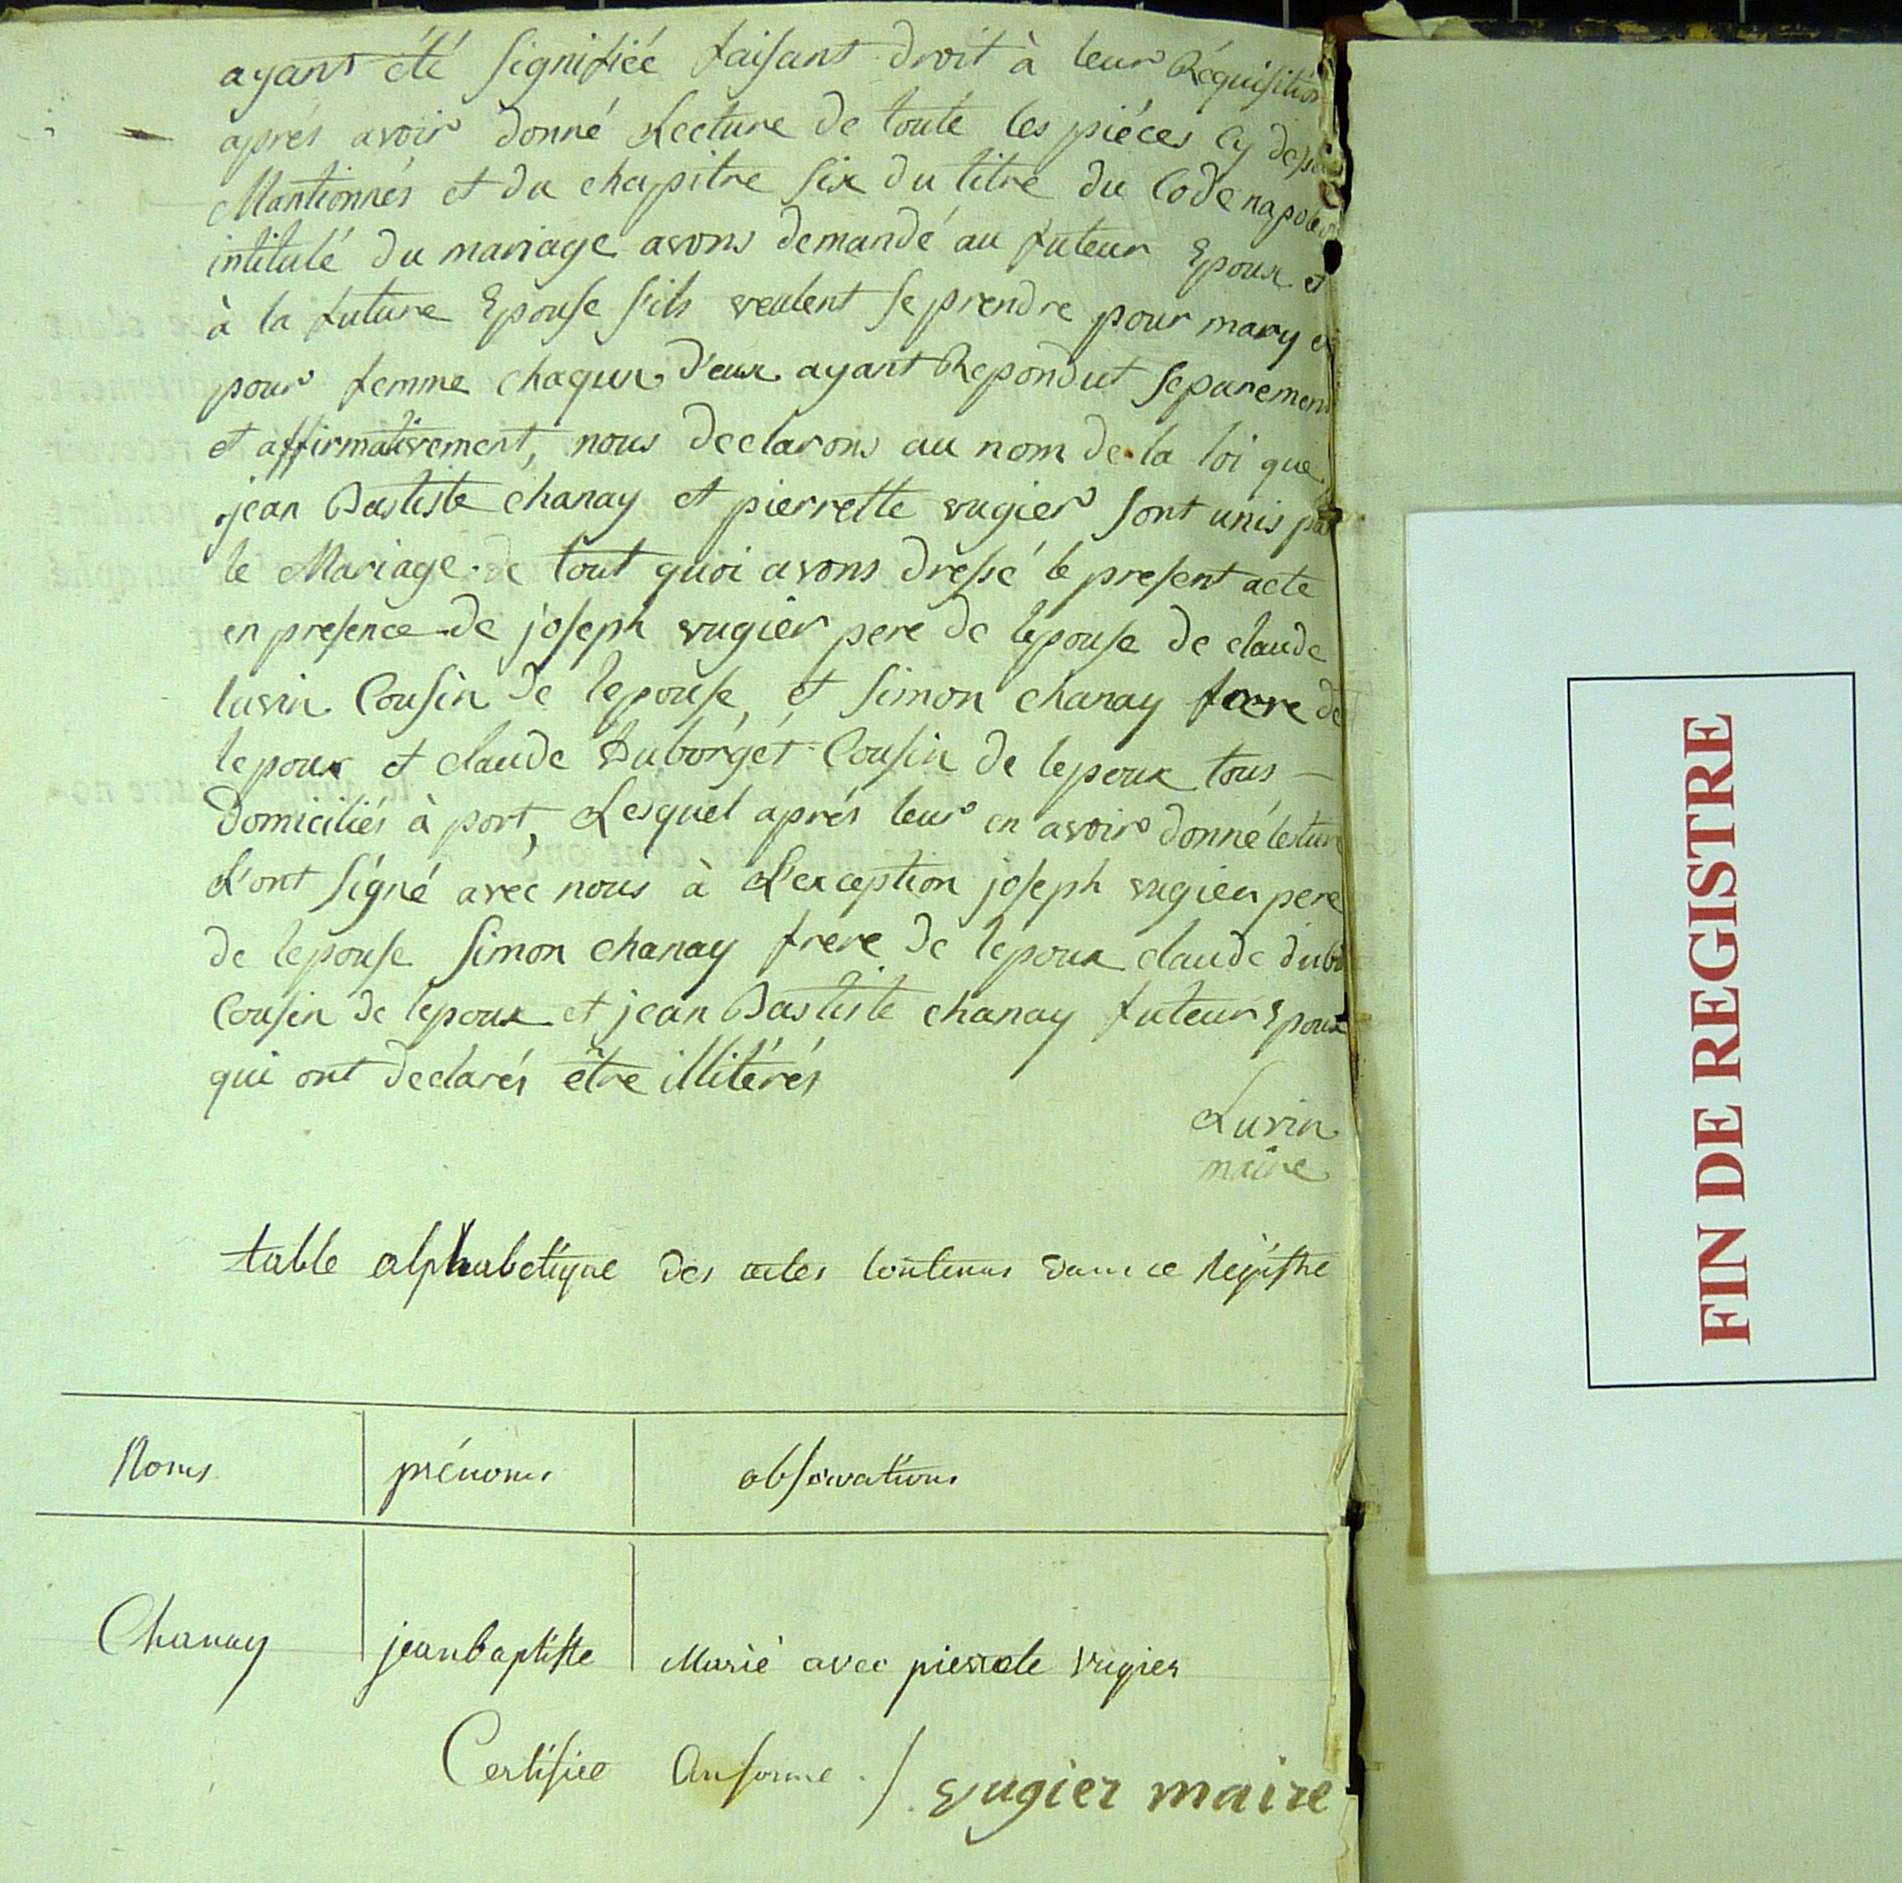 ayant été signifiée faisant droit à leur Réquisition
aprés avoir donné Lecture de toute les piéces cy
Mantionnés et du chapitre six du titre du Code napoleon
intitulé du mariage avons demandé au futeur Epoux et
à la future Epouse s'ils veulent se prendre pour mary et
pour femme chaqun d'eux ayant Repondut separement
et affirmativement, nous declarons au nom de la loi que
jean Bastiste chanay et pierrette vugier sont unis par
le Mariage. de tout quoi avons dressé le present acte
en presence de joseph vugier pere de lepouse de claude
luvin Cousin de lepouse, et simon chanay frere de
lepoux et claude Duborget Cousin de lepoux tous
Domiciliés à port, Lesquel aprés leur en avoir donné letur
L'ont signé avéc nous à L'exception joseph vugier pere
de lepouse simon chanay frere de lepoux claude dubo
Cousin de lepoux et jean Bastiste chanay futeur Epoux
qui ont declarés être illitérés
Luvin
maire
table alphabetique des actes contenus dans ce Régistre
Noms prénoms observations
Chanay jean baptiste Marié avec pierrete vugier
Certifiee Conforme ./. vugier maire
FIN DE REGISTRE